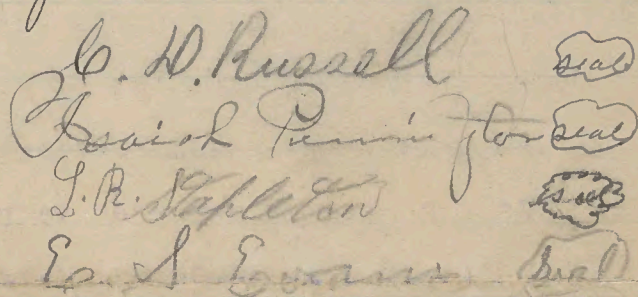 C. D. Russell seal
Isaiah Pennington seal
L. R. Stapleton seal
E. S. Evans seal